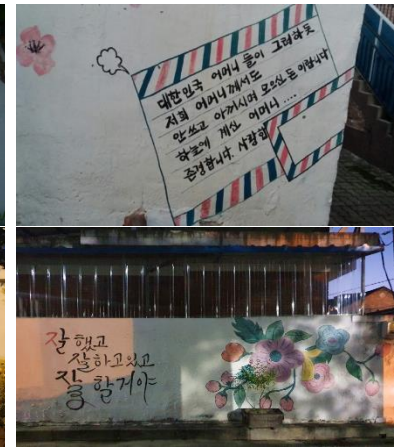 대한민국 어머니 들이 그러하듯
저희 어머니께서도
안쓰고 아끼시며 모으신 돈 이랍니다
하늘에 계신 어머니 ....
존경합니다. 사랑합
잘 했고
잘 하고있고
잘 할거야